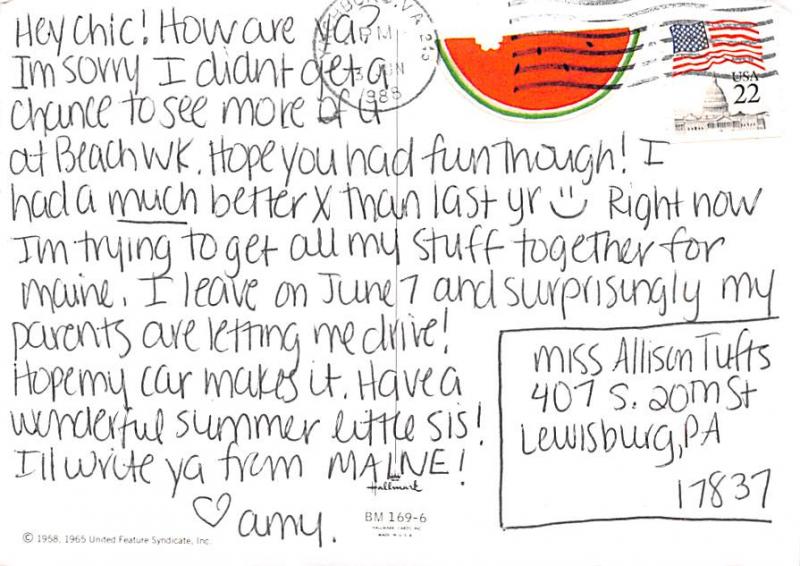 Hey Chic! How are ya?
Im sorry I didnt get a
chance to see more of u
at Beach WK. Hope you had fun though! I
had a much better X than last yr Right now
I'm trying to get all my stuff together for
Maine. I leave on June 7 and surprisingly my
parents are letting me drive!
Hope my car makes it. Have a
wonderful summer little sis!
I'll write ya from MAINE!
♡ amy.
VA
PM
1988
USA
22
Miss Allison Tufts
407 S. 20th St
Lewisburg, PA
17837
Hallmark
BM 169-6
HALLMARK CARDS, INC.
MADE IN U.S.A.
© 1958, 1965 United Feature Syndicate, Inc.